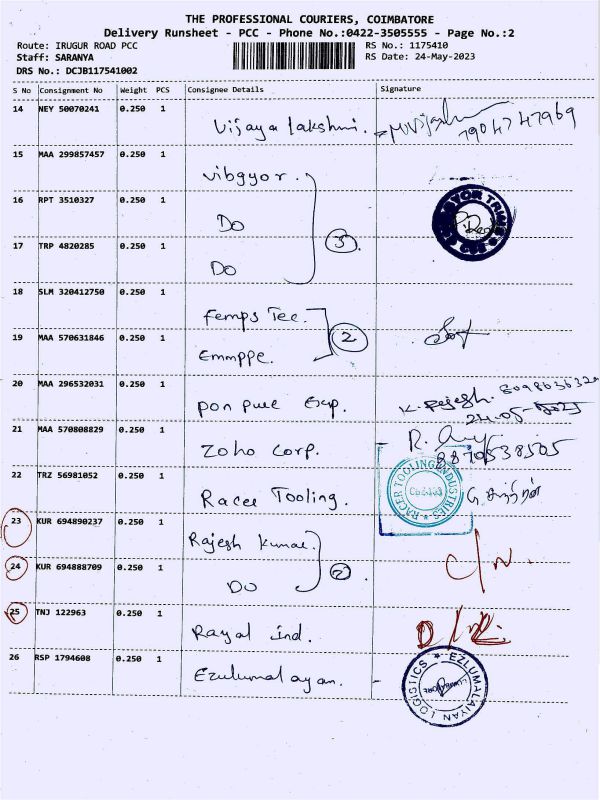 THE PROFESSIONAL COURIERS, COIMBATORE
Delivery Runsheet - PCC - Phone No.:0422-3505555 - Page No.:2
Route: IRUGUR ROAD PCC
RS No.: 1175410
Staff: SARANYA
RS Date: 24-May-2023
DRS No.: DCJB117541002
S No Consignment No Weight PCS Consignee Details Signature
14 NEY 50070241 0.250 1 Vijaya lakshmi. 7904747969
15 MAA 299857457 0.250 1 Vibgyor.
16 RPT 3510327 0.250 1 Do
3
17 TRP 4820285 0.250 1 Do
18 SLM 320412750 0.250 1 Femps Tec.
2
19 MAA 570631846 0.250 1 Emmppe.
20 MAA 296532031 0.250 1 Pon pure Exp. K. Rajesh.
21 MAA 570808829 0.250 1 Zoho Corp. 8870538505
22 TRZ 56981052 0.250 1 Racer Tooling.
RACER TOOLING INDUSTRIES
23 KUR 694890237 0.250 1 Rajesh Kumar.
2
24 KUR 694888709 0.250 1 Do
C/N.
25 TNJ 122963 0.250 1 Rayal ind.
26 RSP 1794608 0.250 1 Ezulumalayan.
EZLUMALAIYAN LOGISTICS